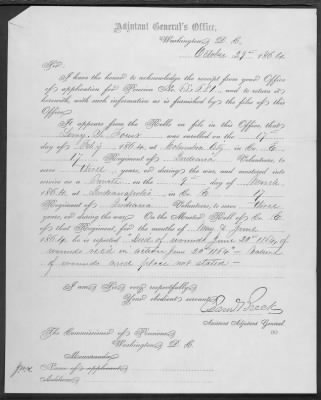 Adjutant General's Office,
Washington, D. C.
October 27th 1864.
Sir:
I have the honor to acknowledge the receipt from your Office
of application for Pension No. and to return it
herewith, with such information as is furnished by the files of this
Office.
It appears from the Rolls on file in this Office, that
was enrolled on the 17th
day of Feb'y 1864, at Columbia City in Co. E
17 Regiment of Indiana Volunteers, to
serve three years, or during the war, and mustered into
service as a Private on the 9th day of March
1864, at Indianapolis in Co. E 17
Regiment of Indiana Volunteers, to serve three
years, or during the war. On the Muster Roll of Co. E
of that Regiment, for the months of May & June
1864, he is reported "Died of wounds June 20th 1864 of
wounds rec'd in action June 20th 1864" - nature
of wounds and place not stated -
I am, Sir, very respectfully,
Your obedient servant,
Assistant Adjutant General.
The Commissioner of Pensions,
Washington, D. C.
Memoranda:
Name of applicant,
Address,